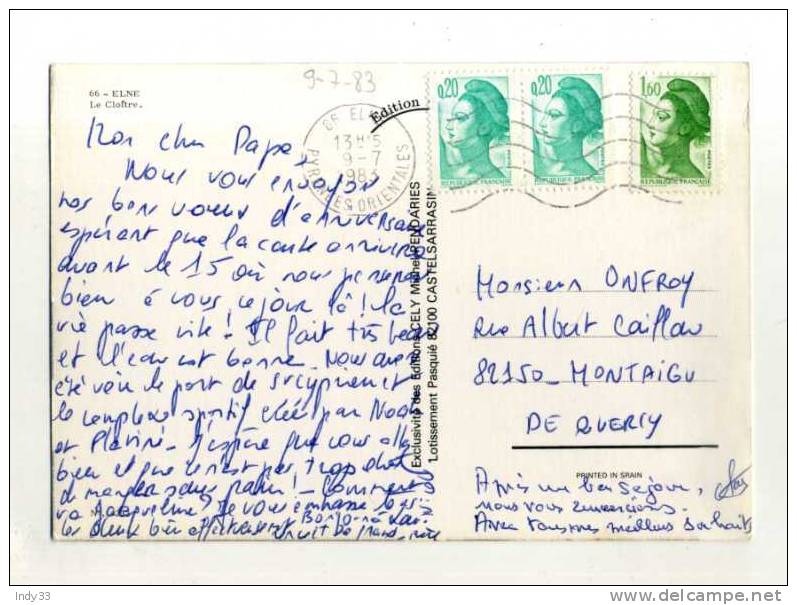 66 - ELNE
Le Cloître.
9-7-83
Édition
66 EL
13H15
9-7
1983
PYRENEES ORIENTALES
0,20
0,20
1,60
REPUBLIQUE FRANÇAISE
REPUBLIQUE FRANÇAISE
REPUBLIQUE FRANÇAISE
Mon cher Papa,
Nous vous envoyons
nos bons voeux d'anniversaire
espérant que la carte arrivera
avant le 15 où nous penserons
bien à vous ce jour là! la
vie passe vite! Il fait très beau
et l'eau est bonne. Nous avons
été voir le port de St Cyprien et
le complexe sportif créé par Noah
et - J'espère que vous allez
bien et que ce n'est pas trop
de manger sans pain! - Comment
va Jacqueline? Je vous embrasse
les deux bien affectueusement
Exclusivité des Editions CELY Michel RENDARIES
Lotissement Pasquié 82100 CASTELSARRASIN
Monsieur ONFROY
Rue Albert Caillau
82150 - MONTAIGU
DE QUERCY
PRINTED IN SPAIN
Après un bon séjour,
nous vous
Avec tous mes meilleurs souhaits
Indy33
www.delcampe.net